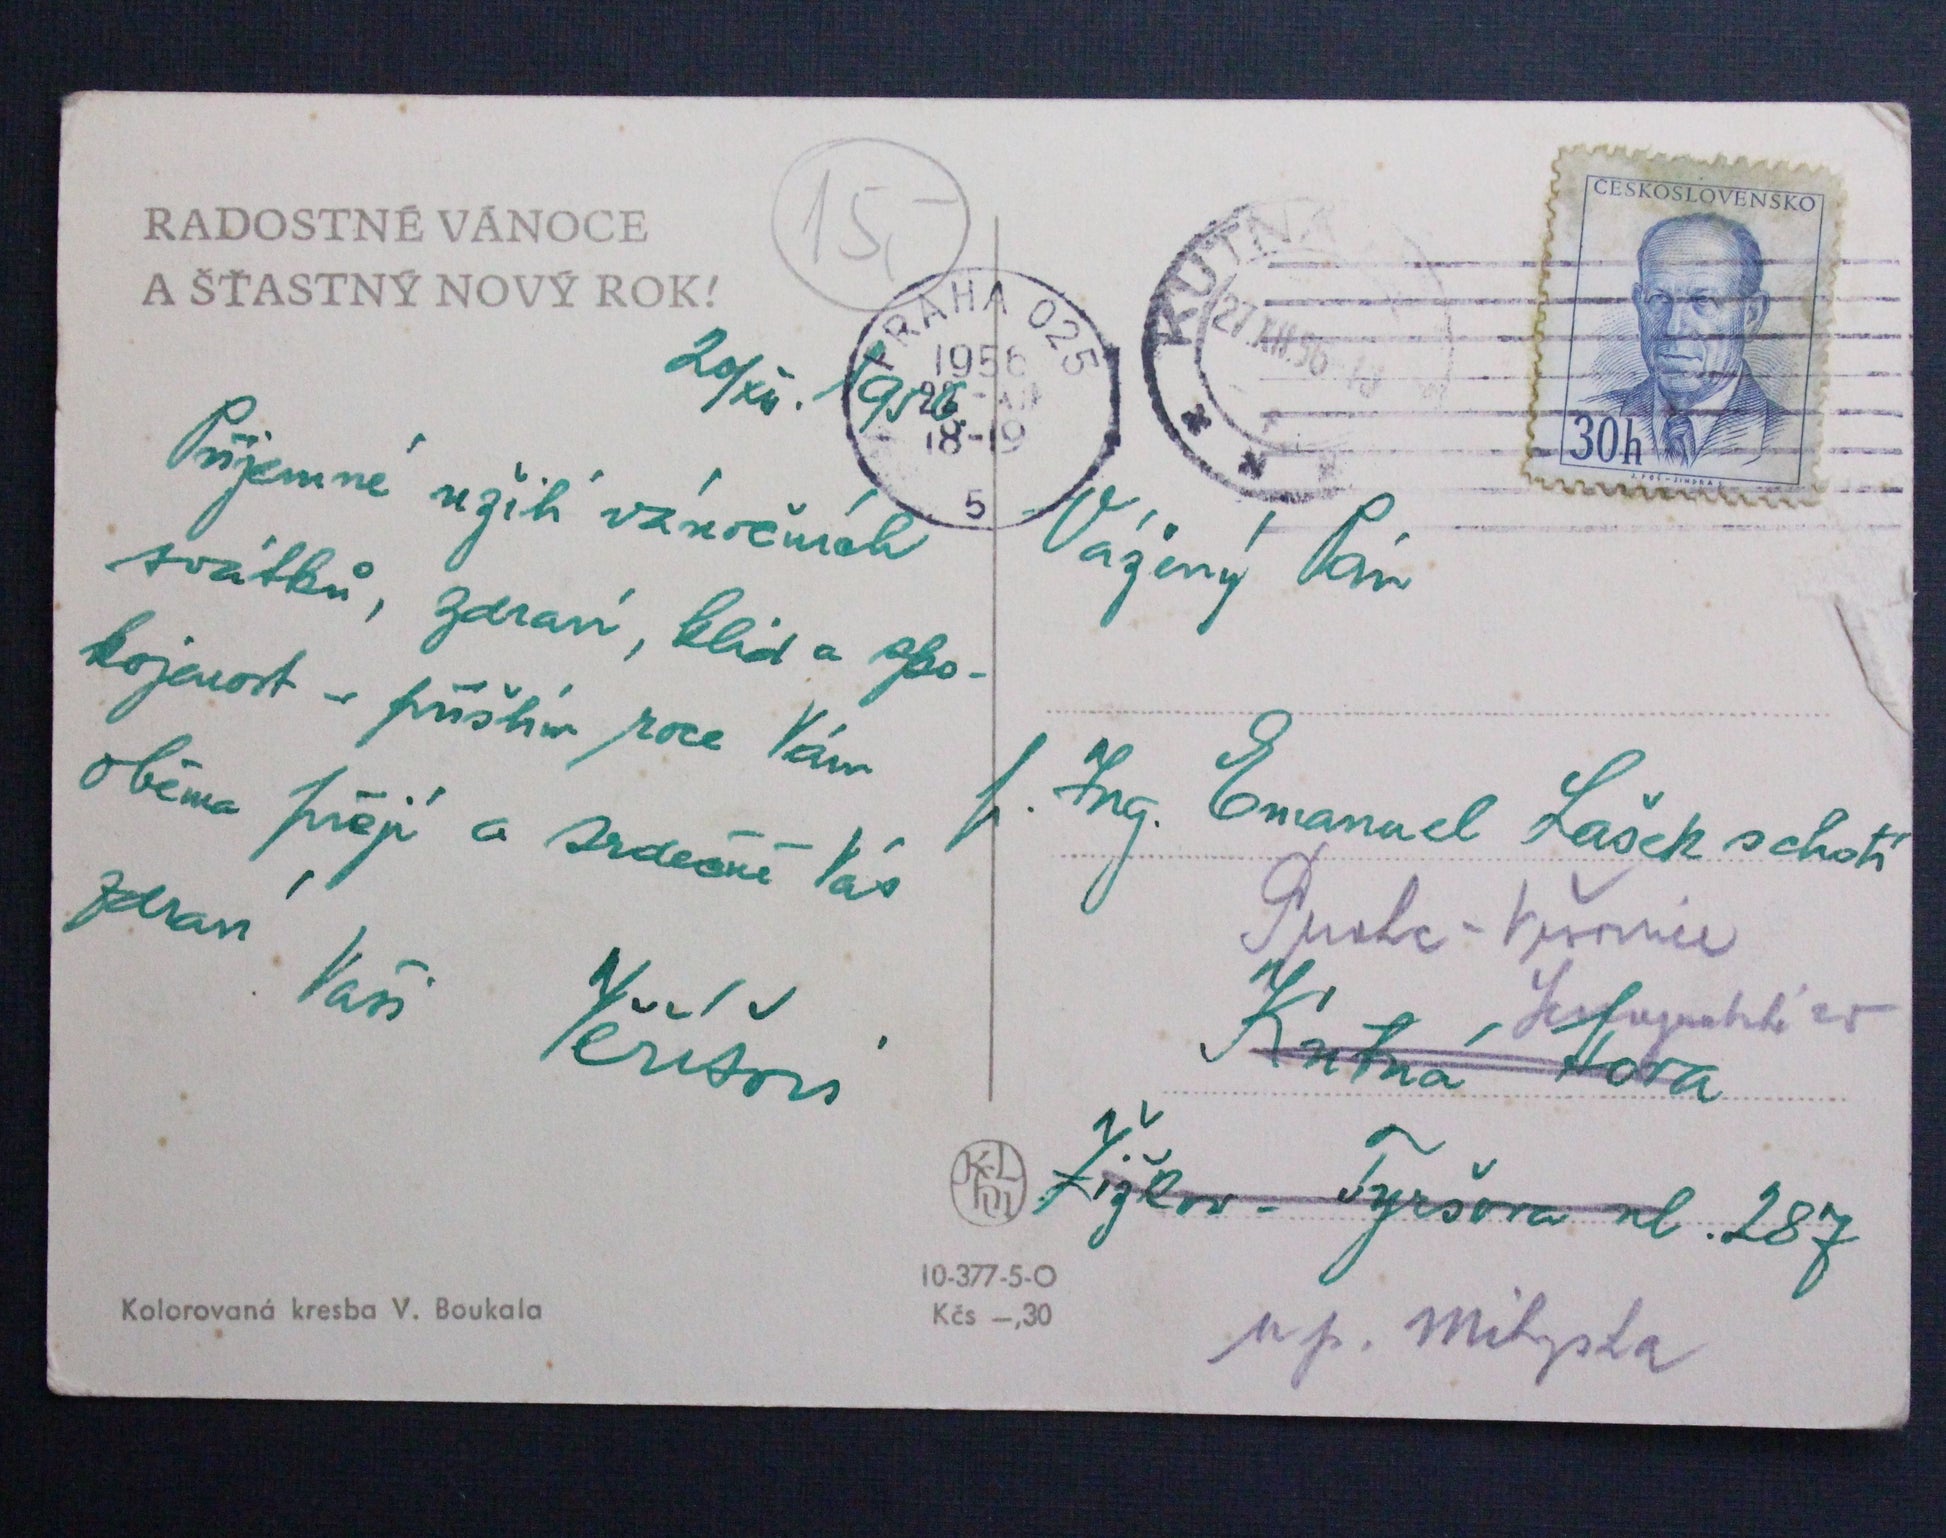 RADOSTNÉ VÁNOCE
A ŠŤASTNÝ NOVÝ ROK!
15,-
20/XII. 1956.
Příjemné užití vánočních
svátků, zdraví, klid a spo-
kojenost v příštím roce Vám
oběma přejí a srdečně Vás
zdraví
Vaši
Kolorovaná kresba V. Boukala
PRAHA 025
1956
18-19
5
KUTNÁ
27.XII.56
ČESKOSLOVENSKO
30h
Vážený Pán
p. Ing. Emanuel Lašek s chotí
Praha -
Kutná Hora
Žižkov - Tyršova ul. 287
u p.
10-377-5-O
Kčs –,30